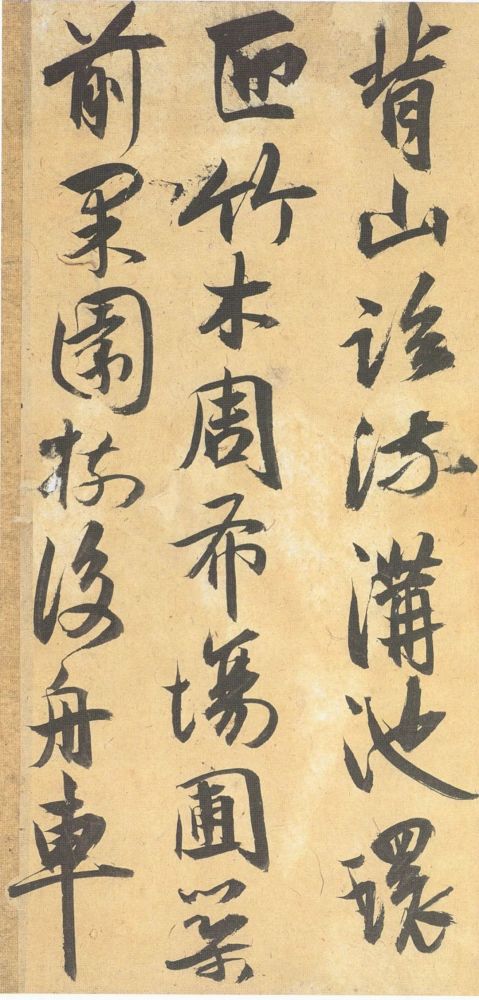 背山臨流溝池環
匝竹木周布場圃築
前果園樹後舟車